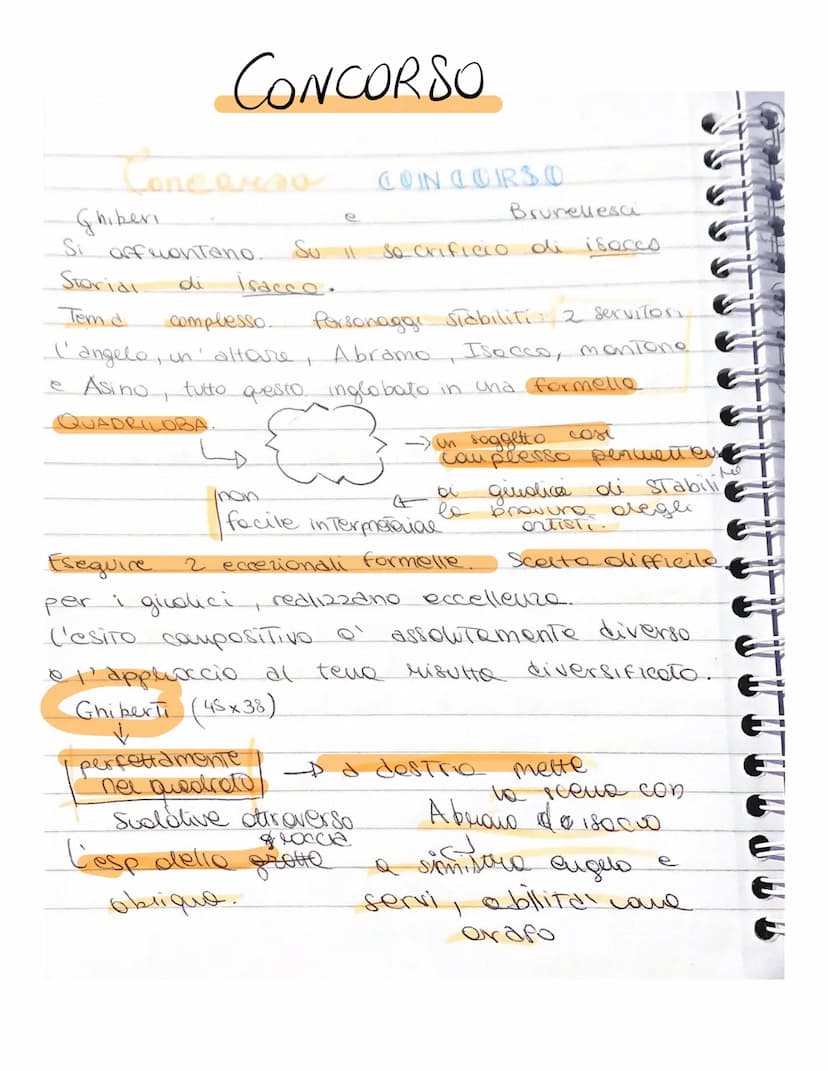 CONCORSO
Concorso CONCORSO
Ghiberi e Brunellesci
Si affrontano. Su il sacrificio di isacco
Storia di Isacco.
Tema complesso. Personaggi stabiliti: 2 servitori
l'angelo, un'altare, Abramo, Isacco, montone
e Asino, tutto questo inglobato in una formella
QUADRILOBA.
→ un soggetto così
complesso permetteva
ai giudici di stabilire
la bravura degli
artisti.
non
facile interpretarla
Eseguire 2 eccezionali formelle. Scelta difficile
per i giudici, realizzano eccellenza.
L'esito compositivo è assolutamente diverso
e l'approccio al tema risulta diversificato.
Ghiberti (45x38)
↓
perfettamente
nel quadrato
→ a destra mette
la scena con
Abramo e isacco
Suddive attraverso
roccia
L'esp della grotta
obliqua.
a sinistra angelo e
servi, abilità come
orafo